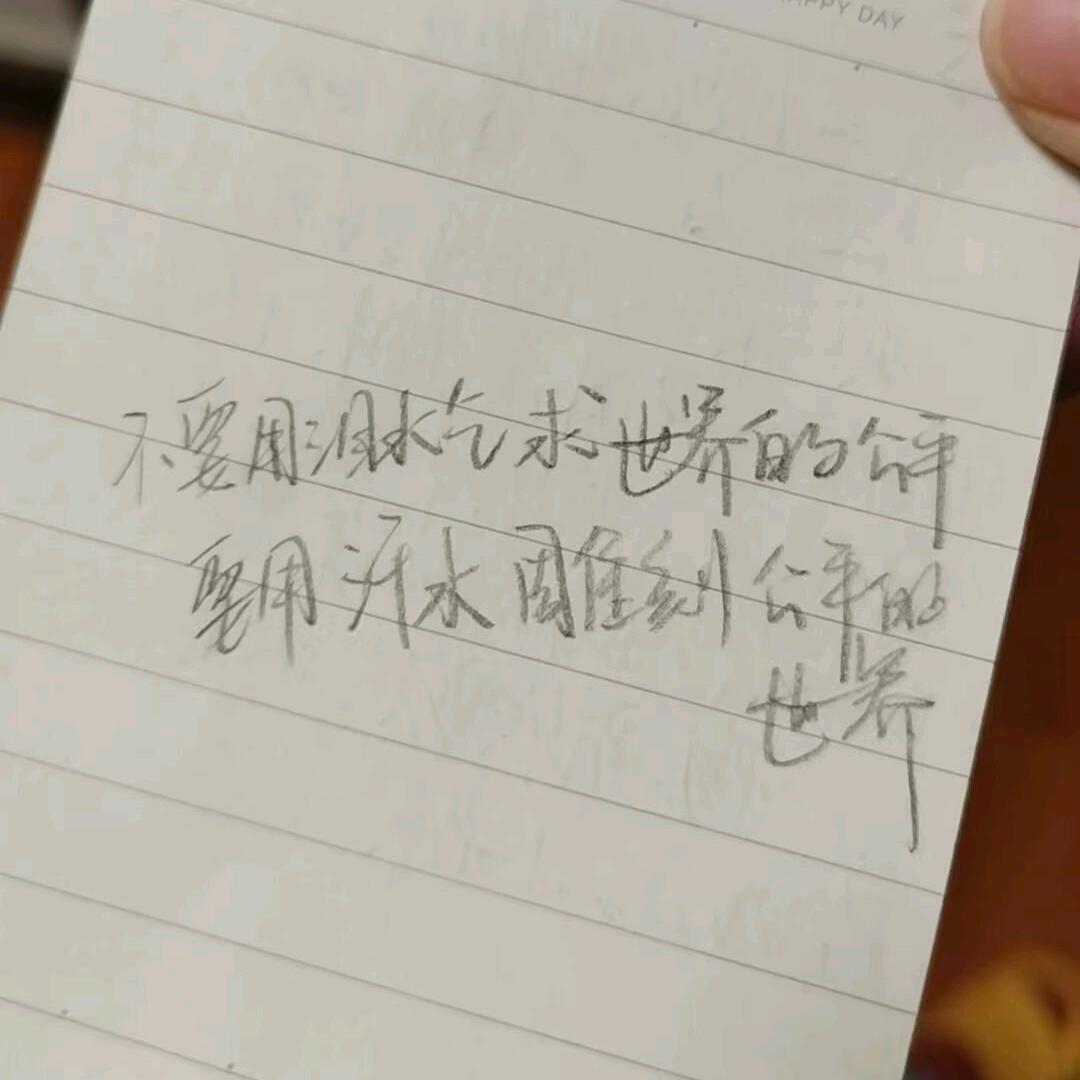 HAPPY DAY
不要用泪水乞求世界的公平
要用汗水雕刻公平的
世界